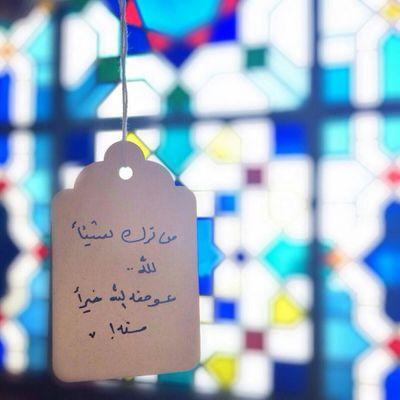 من ترك شيئاً
لله ..
عوضه الله خيراً
منه! ،